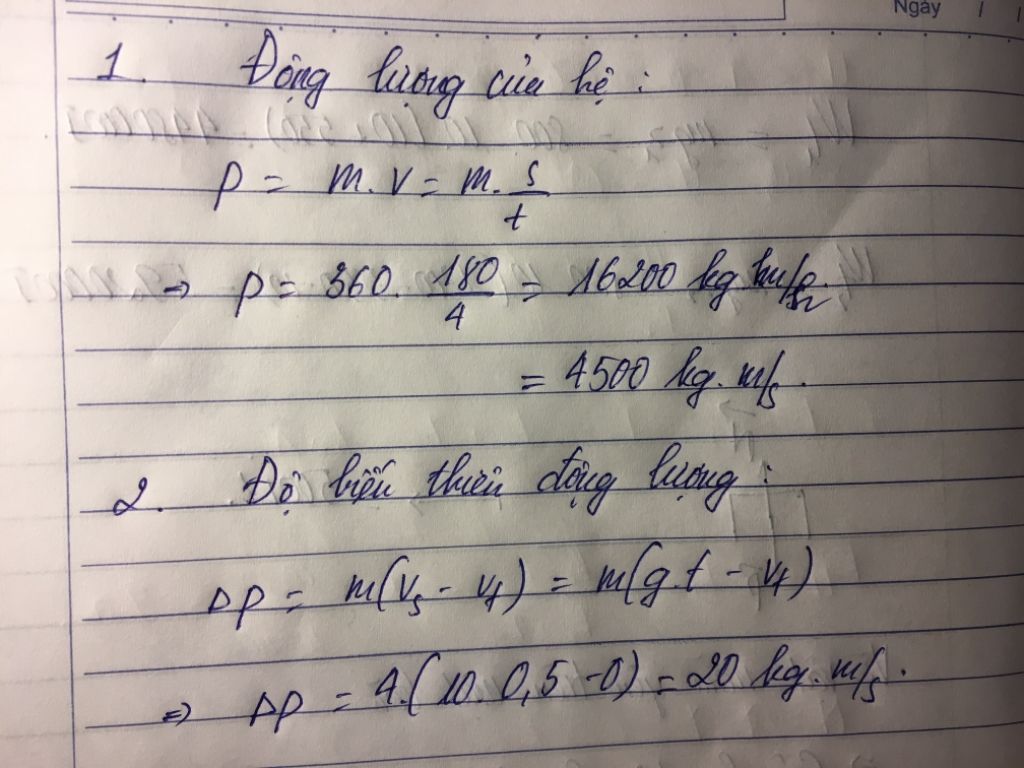 Ngày / /
1. Động lượng của hệ :
p = m.v = m. s/t
→ p = 360. 180/4 = 16200 kg km/h.
= 4500 kg. m/s.
2. Độ biến thiên động lượng :
Δp = m(vs - vt) = m(g.t - vt)
=> Δp = 4.(10. 0,5 - 0) = 20 kg. m/s.